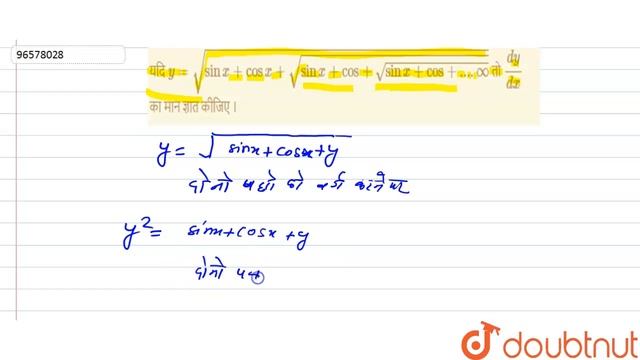 96578028
यदि y = √(sin x + cos x + √(sin x + cos + √(sin x + cos + ....∞))) तो dy/dx
का मान ज्ञात कीजिए।
y = √(sinx+cosx+y)
दोनों पक्षों को वर्ग करने पर
y² = sinx+cosx+y
दोनों पक्
doubtnut